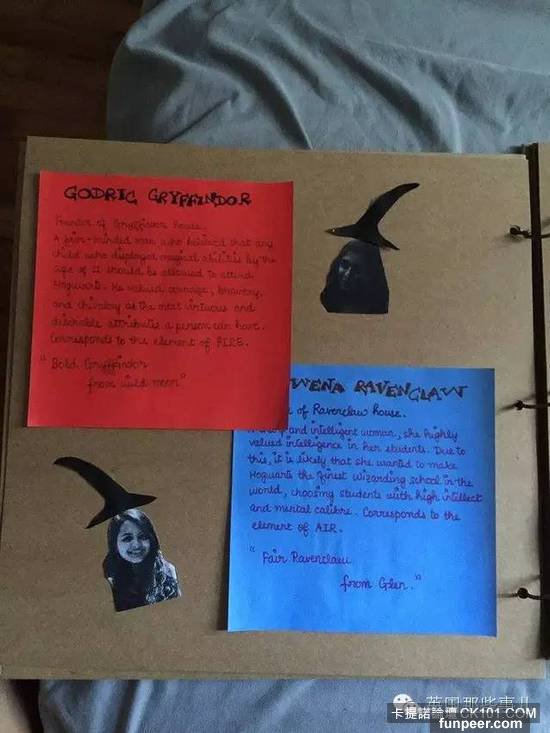 GODRIC GRYFFINDOR
Founder of Gryffindor house.
A fair-minded man who believed that any
child who displayed magical abilities by the
age of 11 should be allowed to attend
Hogwarts. He valued courage, bravery,
and chivalry as the most virtuous and
desirable attributes a person can have.
Corresponds to the element of FIRE.
"Bold Gryffindor
from wild moor"
WENA RAVENCLAW
of Ravenclaw house.
and intelligent woman, she highly
valued intelligence in her students. Due to
this, it is likely that she wanted to make
Hogwarts the finest wizarding school in the
world, choosing students with high intellect
and mental calibre. Corresponds to the
element of AIR.
"Fair Ravenclaw
from Glen."
英国那些事儿
卡提諾論壇 CK101.COM
funpeer.com